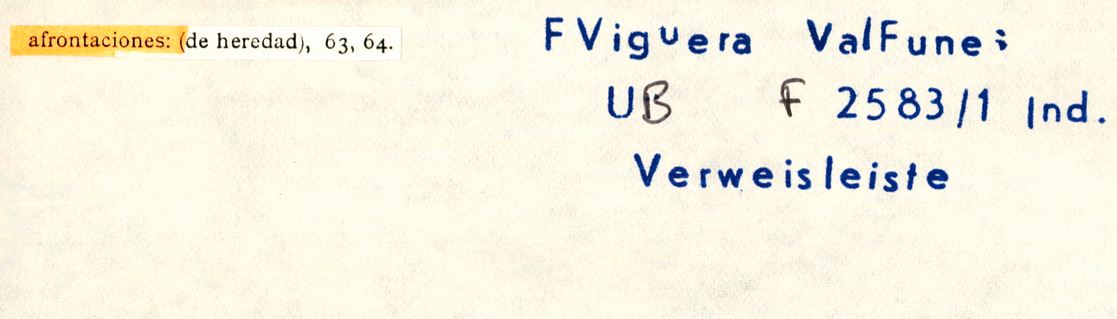 afrontaciones: (de heredad), 63, 64.
FViguera ValFune:
UB F 2583/1 Ind.
Verweisleiste